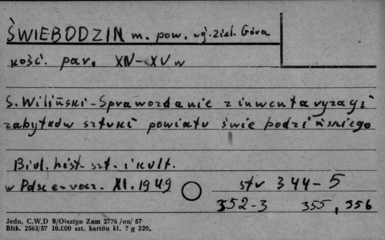 ŚWIEBODZIN m. pow. wj-ziel. Góra
kość. par. XIV-XV w
S. Wiliński - Sprawozdanie z inwentaryzacji
zabytków sztuki powiatu świebodzińskiego
Biul. hist. szt. i kult.
w Polsce - rocz. XI. 1949 str 344-5
352-3 355, 356
Jedn. C.W.D 8/Olsztyn Zam 2776/on/57
Błsk. 2563/57 10.000 szt. karton kl. 7 g 220.